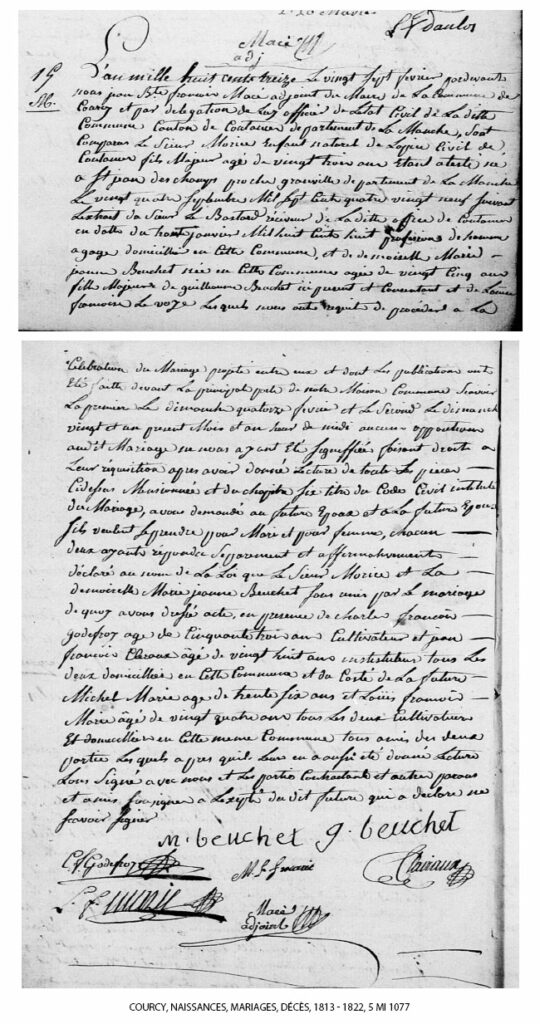 Macé
adj
15
M.
L'an mille huit cents treize le vingt sept fevrier pardevant
nous jean Bte francois Macé adjoint du Maire de La Commune de
Courcy et par delegation de Luy officier de Letat Civil de La ditte
Commune Canton de Coutance departement de La Manche, sont
Comparus Le Sieur Morice Enfant naturel de Lospice Civil de
Coutance fils Majeur agé de vingt trois ans Etant atesté né
a St jean des champs proche granville departement de La Manche
Le vingt quatre Septembre Mil sept Cents quatre vingt neuf suivant
Lextrait du Sieur Le Bastard réciveur de La ditte office de Coutance
en datte du huit janvier Mil huit Cents huit profession de homme
a gage domicilié en Cette Commune, et de demoiselle Marie
jeanne Beuchet née en Cette Commune agée de vingt Cinq ans
fille Majeure de guillaume Beuchet ici present et Consentant et de Louise
francoise Le voye Les quels nous ont requit de procéder a La
Celebration du Mariage projeté entre eux et dont Les publications ont
Eté faitte devant La principal porte de notre Maison Commune Scavoir
La premier Le dimanche quatorze fevrier et Le Second Le dimanche
vingt et un present Mois et an heure de midi aucune opposition
audit Mariage ne nous ayant Eté signiffiée faisant droit a
Leur réquisition apres avoir donné Lecture de toute Les pieces
Cidessus Mensionnée et du chapitre six titre du Code Civil intitulé
du Mariage, avons demandé au future Epoux et a La future Epouse
sils veulent se prendre pour Mari et pour femme, chacun
deux ayant répondu Separement et affirmativement
déclaré au nom de La Loi que Le Sieur Morice et La
demoiselle Marie jeanne Beuchet sont unis par Le mariage
de quoy avons dressé acte, en presence de charle francois
godefroy age de Cinquante trois ans Cultivateur et jean
francois Cleraux âgé de vingt huit ans instituteur tous Les
deux domiciliée en Cette Commune et du Coté de La future
Michel Marie age de trente six ans et Loüis francois
Marie âgé de vingt quatre ans tous Les deux Cultivateur
Et domicilier en Cette meme Commune tous amis des deux
partie Les quels apres quil Leur en a aussi été donné Lecture
Lons Signé avec nous et Les parties Contractant et autre parens
et amis Soussigner a Lexepte du dit future qui a declaré ne
scavoir signer
m. beuchet g. beuchet
C. f. Godefroy
Clairaux
Macé
adjoint
COURCY, NAISSANCES, MARIAGES, DÉCÈS, 1813 - 1822, 5 MI 1077